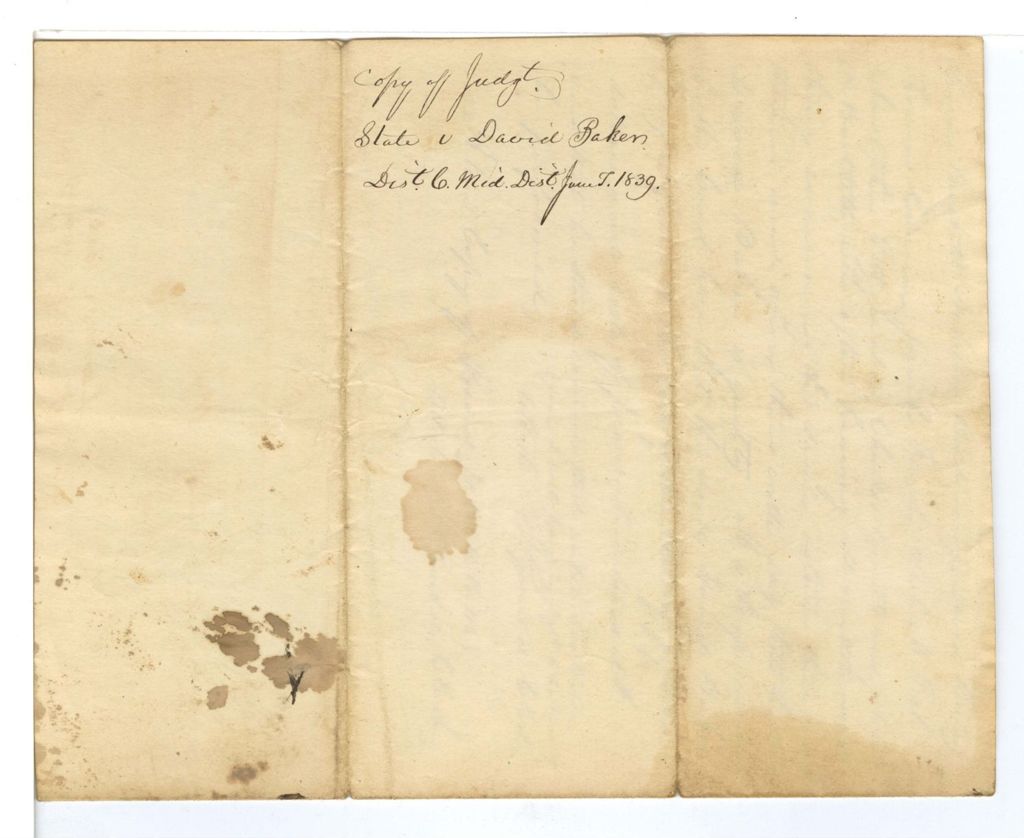 Copy of Judgt.
State v David Baker
Dist. C. Mid. Dist. June T. 1839.